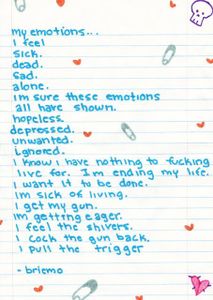 my emotions...
I feel
sick.
dead.
sad.
alone.
im sure these emotions
all have shown.
hopeless.
depressed.
unwanted.
ignored.
I know i have nothing to fucking
live for. I'm ending my life.
I want it to be done.
im sick of living.
I get my gun.
im getting eager.
I feel the shivers.
I cock the gun back.
I pull the trigger
- briemo